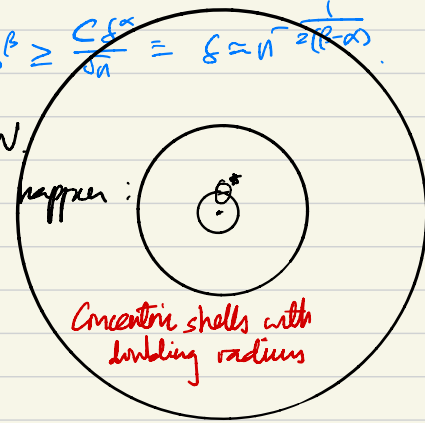 β ≥ Cδ^α/√n ≡ δ ≈ n^{-1/(2(β-α))}.
happen :
θ*
Concentric shells with
doubling radius